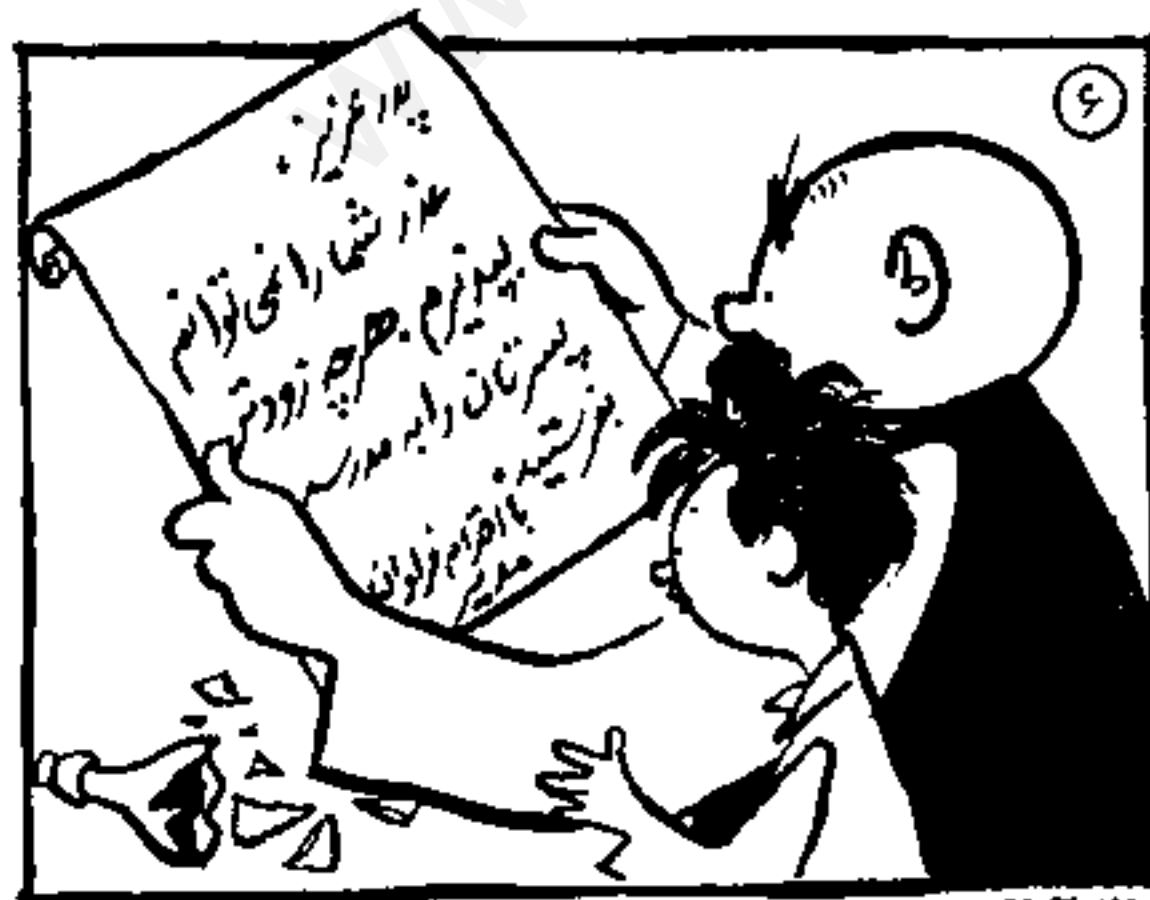 ۶
پدر عزیز.
عذر شما را نمی توانم
بپذیرم. هرچه زودتر
پسرتان را به مدرسه
بفرستید.
با احترام فراوان
مدیر